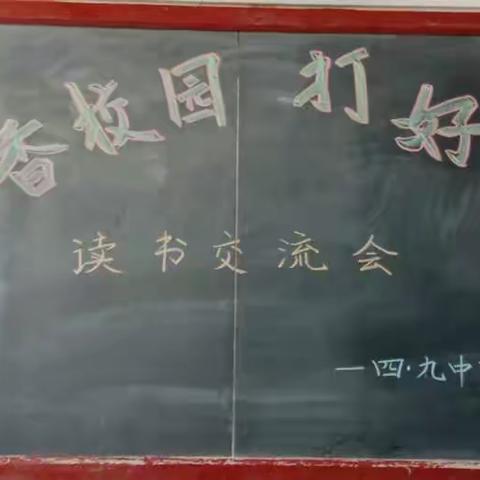 香校园 打好
读书交流会
一四·九中